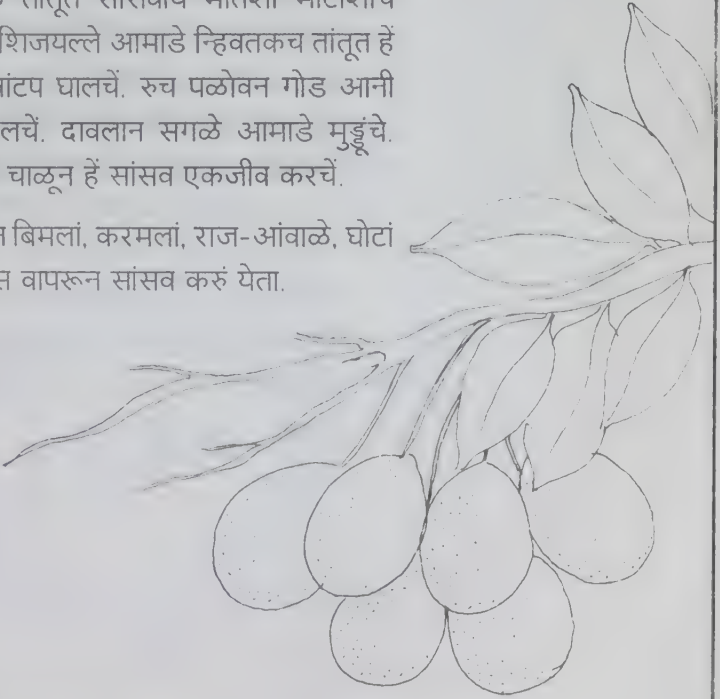 तांतूत
शिजयल्ले आमाडे न्हिवतकच तांतूत हें
वांटप घालचें. रुच पळोवन गोड आनी
लचें. दावलान सगळे आमाडे मुड्डूंचे.
चाळून हें सांसव एकजीव करचें.
बिमलां, करमलां, राज-आंवाळे, घोटां
वापरून सांसव करुं येता.